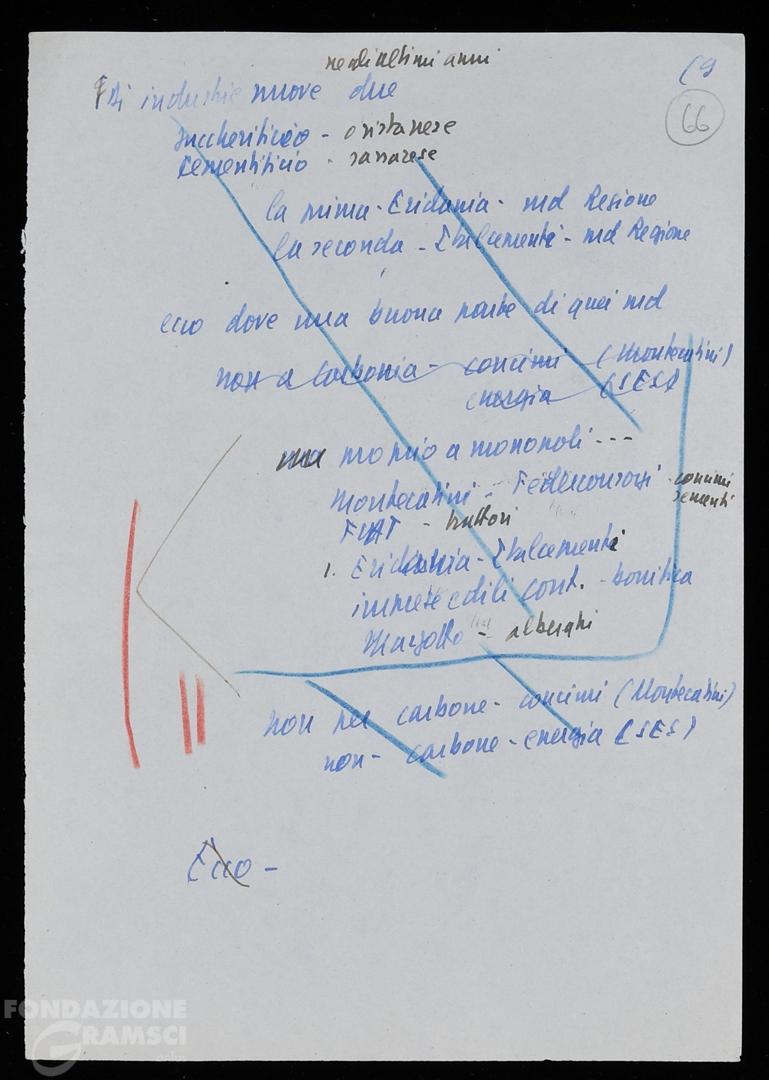 negli ultimi anni
(9
66
Di industrie nuove due
Zuccherificio - oristanese
Cementificio - sassarese
la prima - Eridania - md Regione
la seconda - Italcementi - md Regione
ecco dove una buona parte di quei md
non a Carbonia - concimi (Montecatini)
energia (SES)
ma proprio a monopoli ---
Montecatini - Federconsorzi - concimi
sementi
FIAT - trattori
1. Eridania - Italcementi
imprese edili cont. - bonifica
Marzotto - alberghi
non per carbone - concimi (Montecatini)
non - carbone - energia (SES)
Ecco -
FONDAZIONE
GRAMSCI
onlus